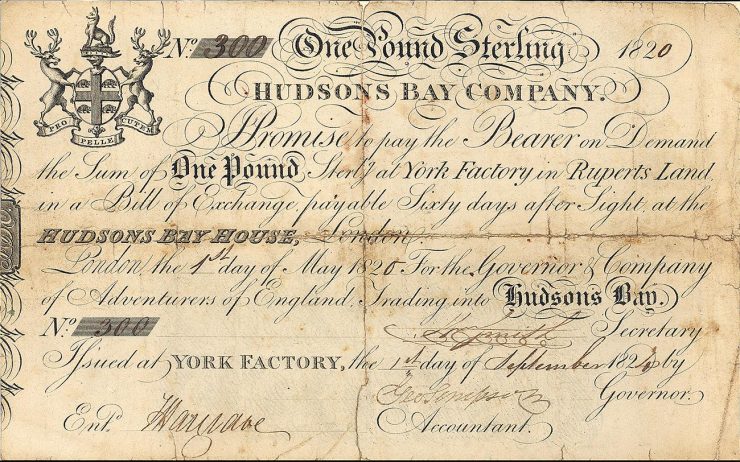 No. 300 One Pound Sterling 1820
HUDSONS BAY COMPANY.
PRO PELLE CUTEM
Promise to pay the Bearer on Demand
the Sum of One Pound Sterlg at York Factory in Ruperts Land
in a Bill of Exchange, payable Sixty days after Sight, at the
HUDSONS BAY HOUSE, London.
London, the 1st day of May 1820 For the Governor & Company
of Adventurers of England, Trading into Hudsons Bay.
No. 300 Secretary
Issued at YORK FACTORY, the 1st day of September by
Geo Simpson Governor.
Entd. Hargrave Accountant.